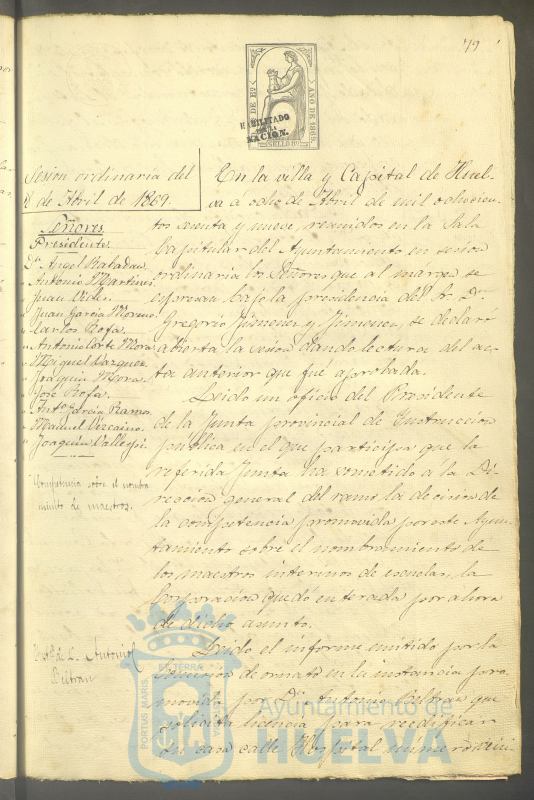 79
DE Eº
AÑO DE 1869.
HABILITADO
POR LA
NACION.
SELLO 10º
Sesion ordinaria del
8 de Abril de 1869.
Señores
Presidente
Dn. Angel Rabadan.
" Antonio Martinez
" Juan Vides.
" Juan Garcia Moreno
" Carlos Rofa.
" Antonio Corte Mora
" Miguel Vazquez.
" Joaquin Mora.
" José Rofa.
" Anto. Garcia Ramos.
" Manuel Vizcaino.
" Joaquin Vallejo.
Competencia sobre el nombra
miento de maestros.
D. Antonio
Beltran
En la villa y Capital de Huel-
va a ocho de Abril de mil ochocien-
tos sesenta y nueve, reunidos en la Sala
Capitular del Ayuntamiento en sesion
ordinaria los Señores que al márgen se
expresan, bajo la presidencia del Sr. Dn.
Gregorio Jimenez y Jimenez, se declaró
abierta la sesion dando lectura del ac-
ta anterior que fué aprobada.
Leido un oficio del Presidente
de la Junta provincial de Instruccion
publica en el que participa que la
referida Junta ha sometido á la Di-
reccion general del ramo la decision de
la competencia promovida por este Ayun-
tamiento sobre el nombramiento de
los maestros interinos de escuelas, la
Corporacion quedó enterada por ahora
de dicho asunto.
Leido el informe emitido por la
Seccion de ornato en la instancia pro-
movida por Dn. Antonio Beltran que
solicita licencia para reedificar
su casa calle Hospital numero vein-
PORTUS MARIS ET TERRÆ CUSTODIA
Ayuntamiento de
HUELVA